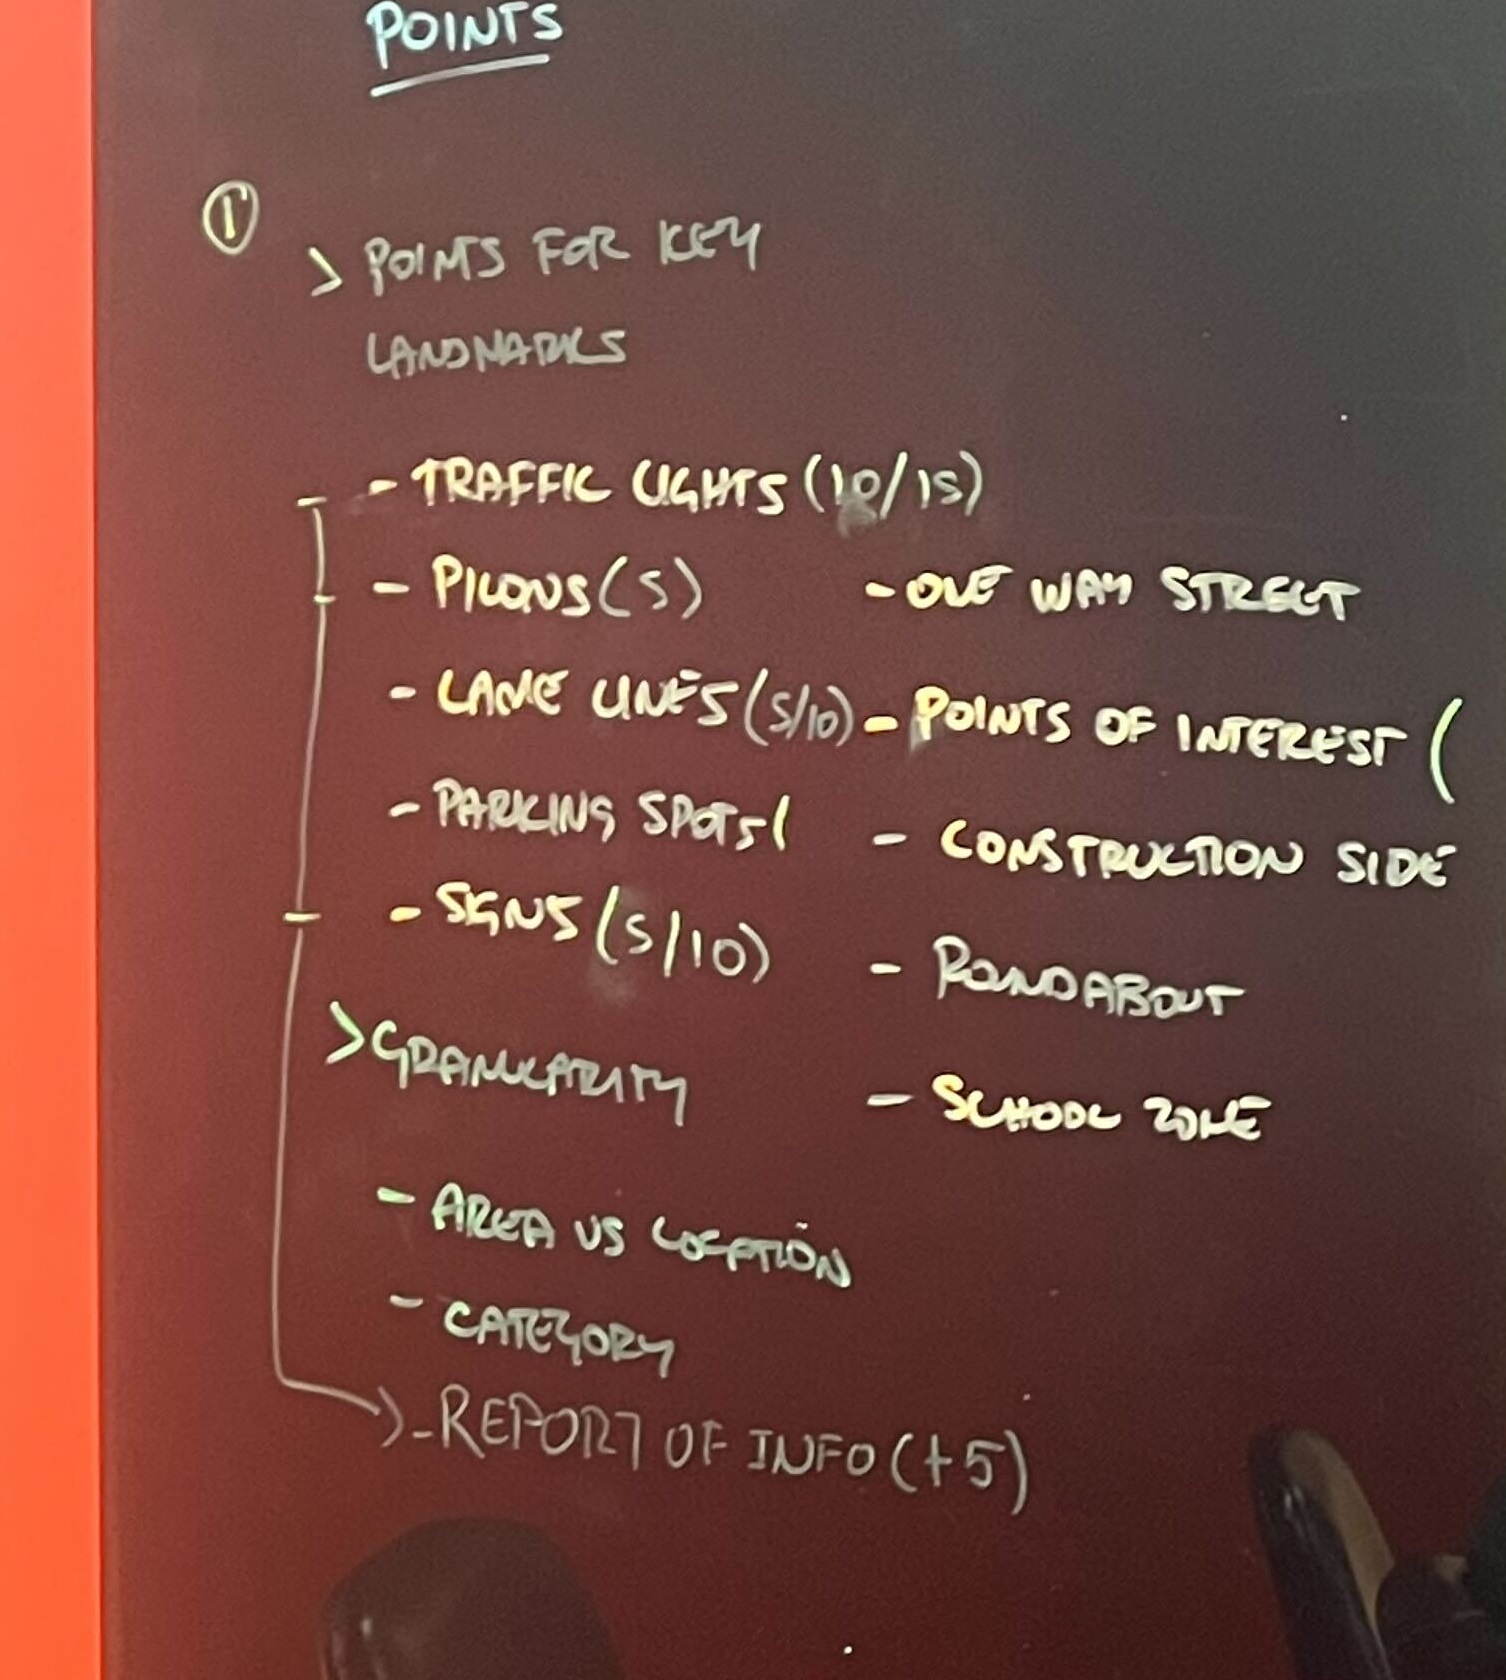 POINTS
①
> POINTS FOR KEY
LANDMARKS
- TRAFFIC LIGHTS (10/15)
- PILONS (5)
- LANE LINES (5/10)
- PARKING SPOTS (
- SIGNS (5/10)
- ONE WAY STREET
- POINTS OF INTEREST (
- CONSTRUCTION SIDE
- ROUNDABOUT
- SCHOOL ZONE
> GRANULARITY
- AREA VS LOCATION
- CATEGORY
> - REPORT OF INFO (+5)